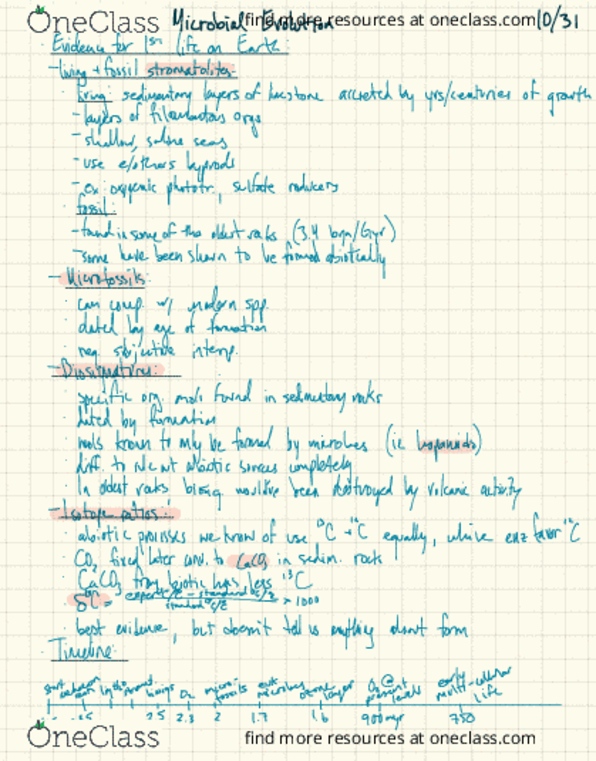 OneClass Microbial Evolution find more resources at oneclass.com 10/31
Evidence for 1st life on Earth:
- living + fossil stromatolites
· living: sedimentary layers of limestone accreted by yrs/centuries of growth
- layers of filamentous orgs
- shallow, saline seas
- use e/others byprods
- ex: oxygenic phototr., sulfate reducers
· fossil:
- found in some of the oldest rocks (3.4 byn/Gyr)
- some have been shown to be formed abiotically
- Microfossils:
· can comp. w/ modern spp.
· dated by age of formation
· req. subjective interp.
- Biosignature:
· specific org. mols found in sedimentary rocks
· dated by formation
· mols known to only be formed by microbes (ie hopanoids)
· diff. to rule out abiotic sources completely
· In oldest rocks biosig would've been destroyed by volcanic activity
- Isotope ratios:
· abiotic processes we know of use 13C + 12C equally, while enz favor 12C
· CO2 fixed later conv. to CaCO3 in sedim. rocks
· CaCO3 from biotic has less 13C
· δ13C = standard × 1000
· best evidence, but doesn't tell us anything about form
· Timeline:
O2 micro fossils euk ozone layer O2 @ present levels early multi-cellular life
2.5 2.3 2 1.7 1.6 900myr 750
OneClass find more resources at oneclass.com